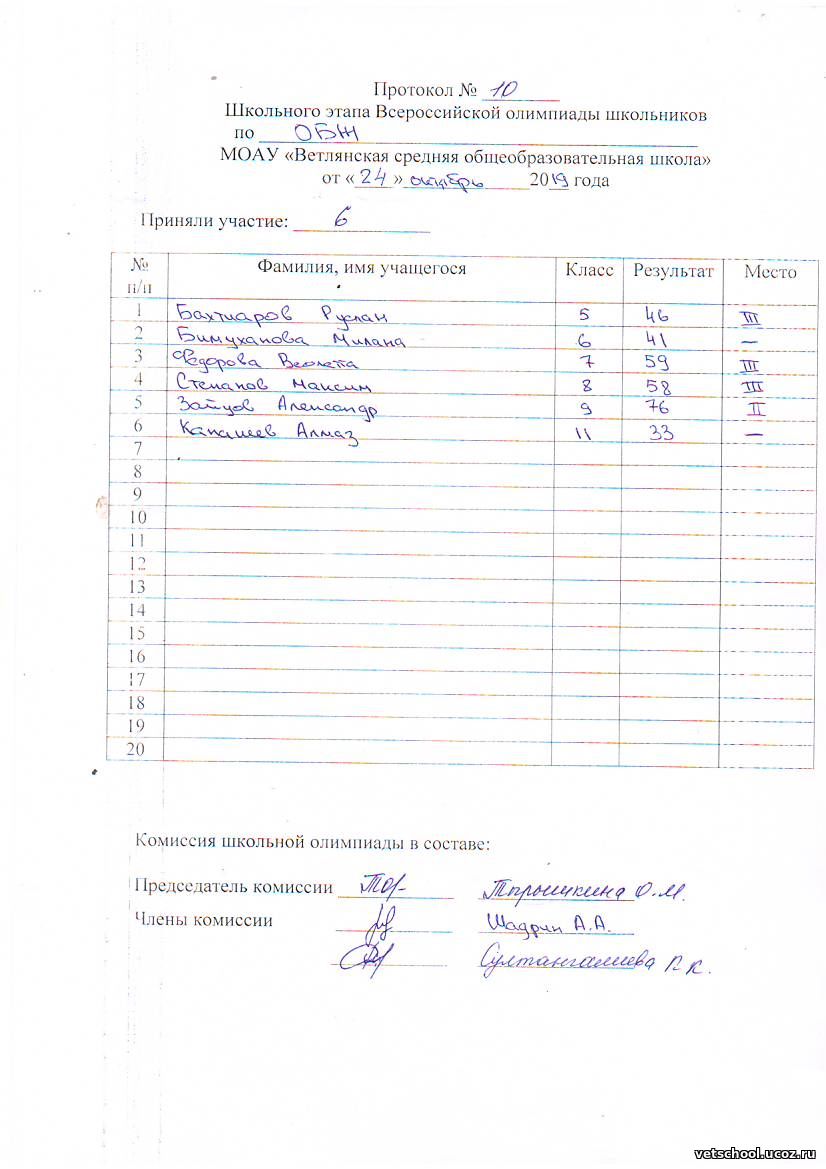 Протокол № 10
Школьного этапа Всероссийской олимпиады школьников
по ОБЖ
МОАУ «Ветлянская средняя общеобразовательная школа»
от «24» октябрь 2019 года
Приняли участие: 6
№ Фамилия, имя учащегося Класс Результат Место
п/п
1 Бахтиаров Руслан 5 46 III
2 Бимуханова Милана 6 41 —
3 Федорова Веолета 7 59 III
4 Степанов Максим 8 58 III
5 Зайцов Александр 9 76 II
6 Капашев Алмаз 11 33 —
7
8
9
10
11
12
13
14
15
16
17
18
19
20
Комиссия школьной олимпиады в составе:
Председатель комиссии О.М.
Члены комиссии Шадрин А.А.
Султангалиева Г.К.
vetschool.ucoz.ru